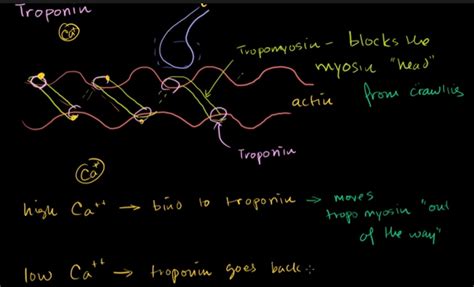 Troponin
Ca++
Tropomyosin - blocks the
myosin "head"
from crawling
actin
Troponin
Ca+
high Ca++ → bind to troponin → moves
tropomyosin "out
of the way"
low Ca++ → troponin goes back